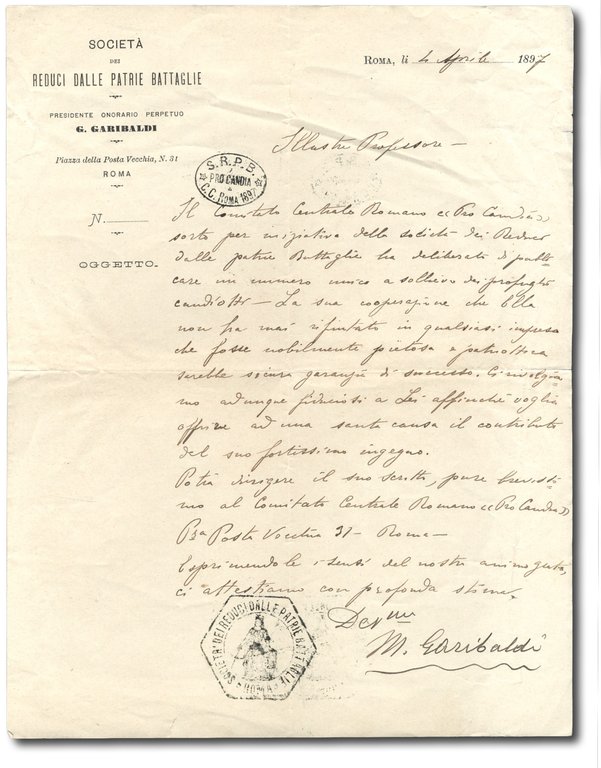 SOCIETÀ
DEI
REDUCI DALLE PATRIE BATTAGLIE
PRESIDENTE ONORARIO PERPETUO
G. GARIBALDI
Piazza della Posta Vecchia, N. 31
ROMA
N.
OGGETTO.
ROMA, li 4 Aprile 1897
S.R.P.B.
PRO CANDIA
C.C. ROMA 1897
Illustre Professore -
Il Comitato Centrale Romano «Pro Candia»
sorto per iniziativa della società dei Reduci
dalle patrie Battaglie ha deliberato di pubbli
care un numero unico a sollievo dei profughi
candiotti - La sua cooperazione che Ella
non ha mai rifiutato in qualsiasi impresa
che fosse nobilmente pietosa e patriottica
sarebbe sicura garanzia di successo. Ci rivolgia
mo adunque fiduciosi a Lei affinché voglia
offrire ad una santa causa il contributo
del suo fortissimo ingegno.
Potrà dirigere il suo scritto, pure brevissi
mo al Comitato Centrale Romano «Pro Candia»
Pza Posta Vecchia 31 - Roma -
Esprimendole i sensi del nostro animo grato,
ci attestiamo con profonda stima.
Devmo
M. Garibaldi
SOCIETÀ DEI REDUCI DALLE PATRIE BATTAGLIE
ROMA